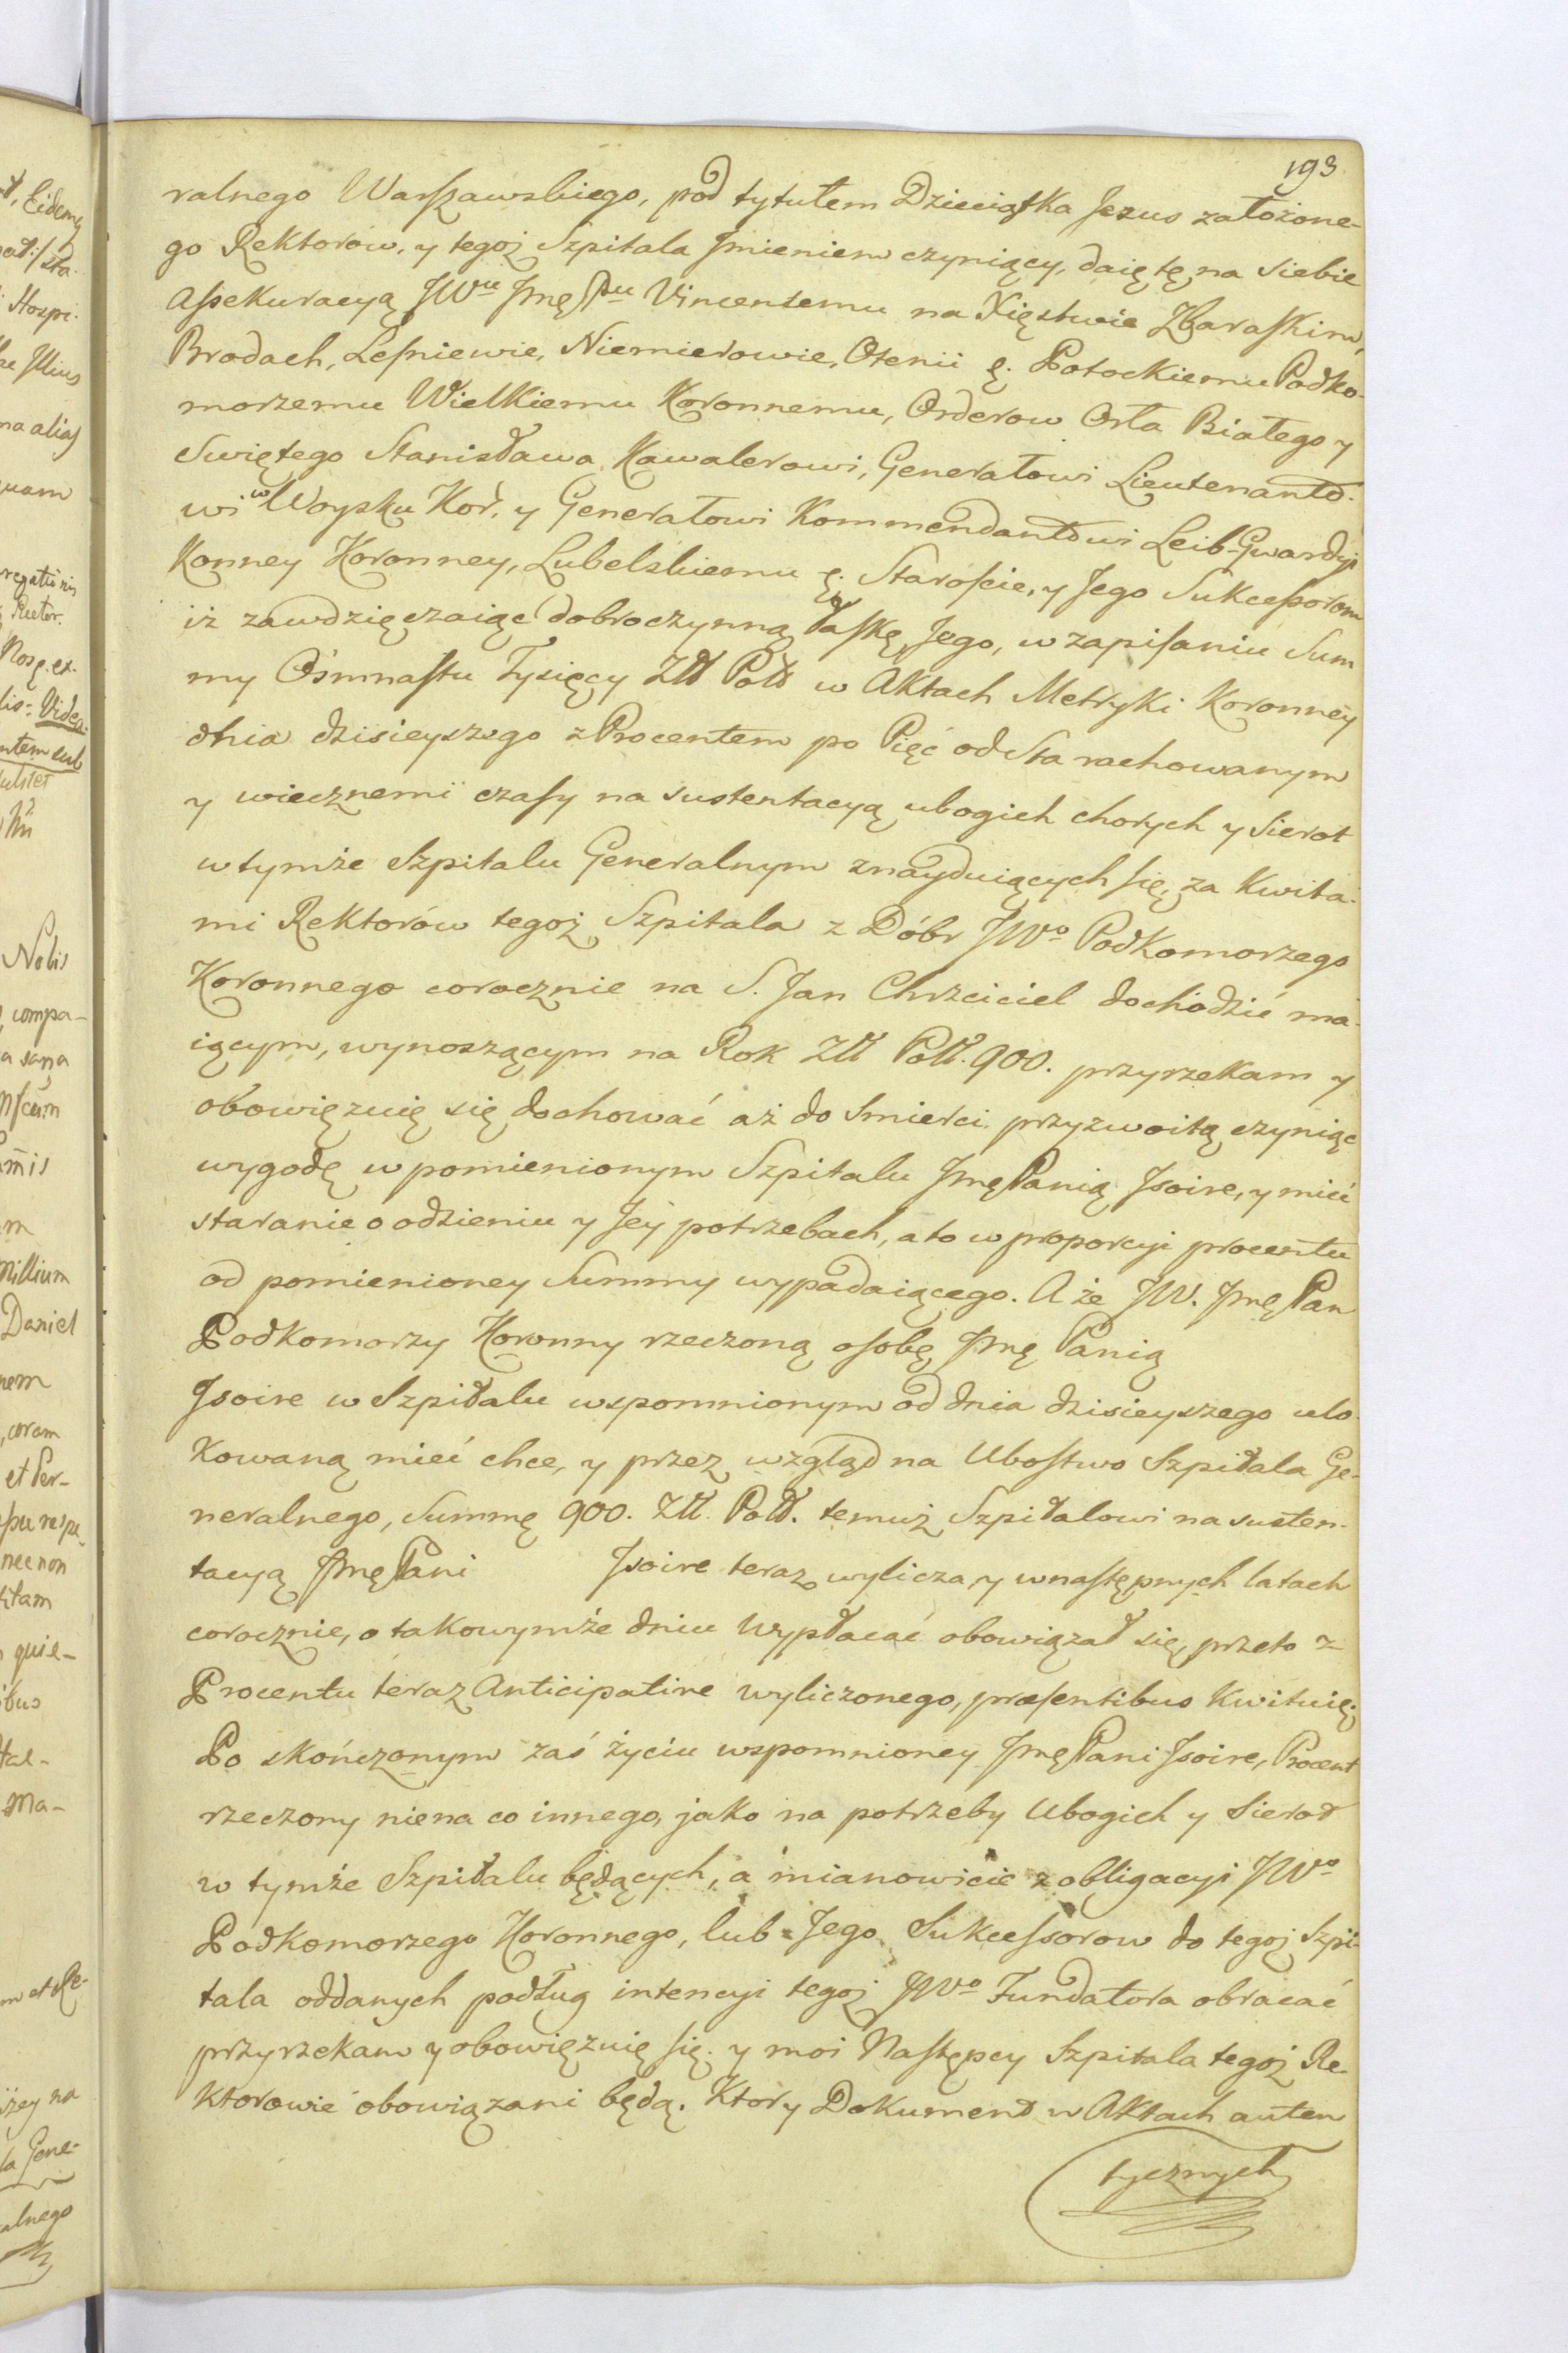 193
ralnego Warszawskiego, pod tytułem Dzieciątka Jezus założone-
go Rektorow, y tegoż Szpitala Jmieniem czyniący, daię tę na siebie
Assekuracyą JWu Jmę Pu Vincentemu na Xięstwie Zbaraskim,
Brodach, Leśniewie, Niemierowie, Otenii &. Potockiemu Podko-
morzemu Wielkiemu Koronnemu, Orderow Orła Białego y
Swiętego Stanisława Kawalerowi, Generałowi Lieutenanto-
wi w Woysku Kor. y Generałowi Kommendantowi Leib-Gwardyi
Konney Koronney, Lubelskiemu &. Staroscie, y Jego Sukcessorom
iż zawdzięczaiąc dobroczynną łaskę Jego, w zapisaniu Sum
my Ośmnastu Tysięcy Złł Poll w Aktach Metryki Koronney
dnia dzisieyszego z Procentem po Pięć od Sta rachowanym
y wiecznemi czasy na sustentacyą ubogich chorych y Sierot
w tymże Szpitalu Generalnym znayduiących się, za Kwita-
mi Rektorów tegoż Szpitala z Dóbr JWo Podkomorzego
Koronnego corocznie na S. Jan Chrzciciel dochodzić ma-
iącym, wynoszącym na Rok Złł Poll. 900. przyrzekam y
obowięzuię się dochować aż do Smierci przyzwoitą czyniąc
wygodę w pomienionym Szpitalu Jmę Panią Jsoire, y mieć
staranie o odzieniu y Jey potrzebach, a to w proporcyi procentu
od pomienioney Summy wypadaiącego. A że JW. Jmę Pan
Podkomorzy Koronny rzeczoną osobę Jmę Panią
Jsoire w Szpitalu wspomnionym od dnia dzisieyszego ulo-
kowaną mieć chce, y przez wzgląd na Ubostwo Szpitala Ge-
neralnego, Summę 900. Złł. Poll. temuż Szpitalowi na susten-
tacyą Jmę Pani Jsoire teraz wylicza, y w następnych latach
corocznie, o takowymże dniu wypłacać obowiązał się, przeto z
Procentu teraz Anticipative wyliczonego, præsentibus Kwituię,
Po skończonym zaś życiu wspomnioney Jmę Pani Jsoire, Procent
rzeczony nie na co innego, jako na potrzeby Ubogich y Sierot
w tymże Szpitalu będących, a mianowicie z obligacyi JWo
Podkomorzego Koronnego, lub Jego Sukcessorow do tegoż Szpi-
tala oddanych podług intencyi tegoż JWo Fundatora obracać
przyrzekam y obowięzuię się. y moi Następcy Szpitala tegoż Re-
ktorowie obowiązani będą. Ktory Dokument w Aktach auten
tycznych